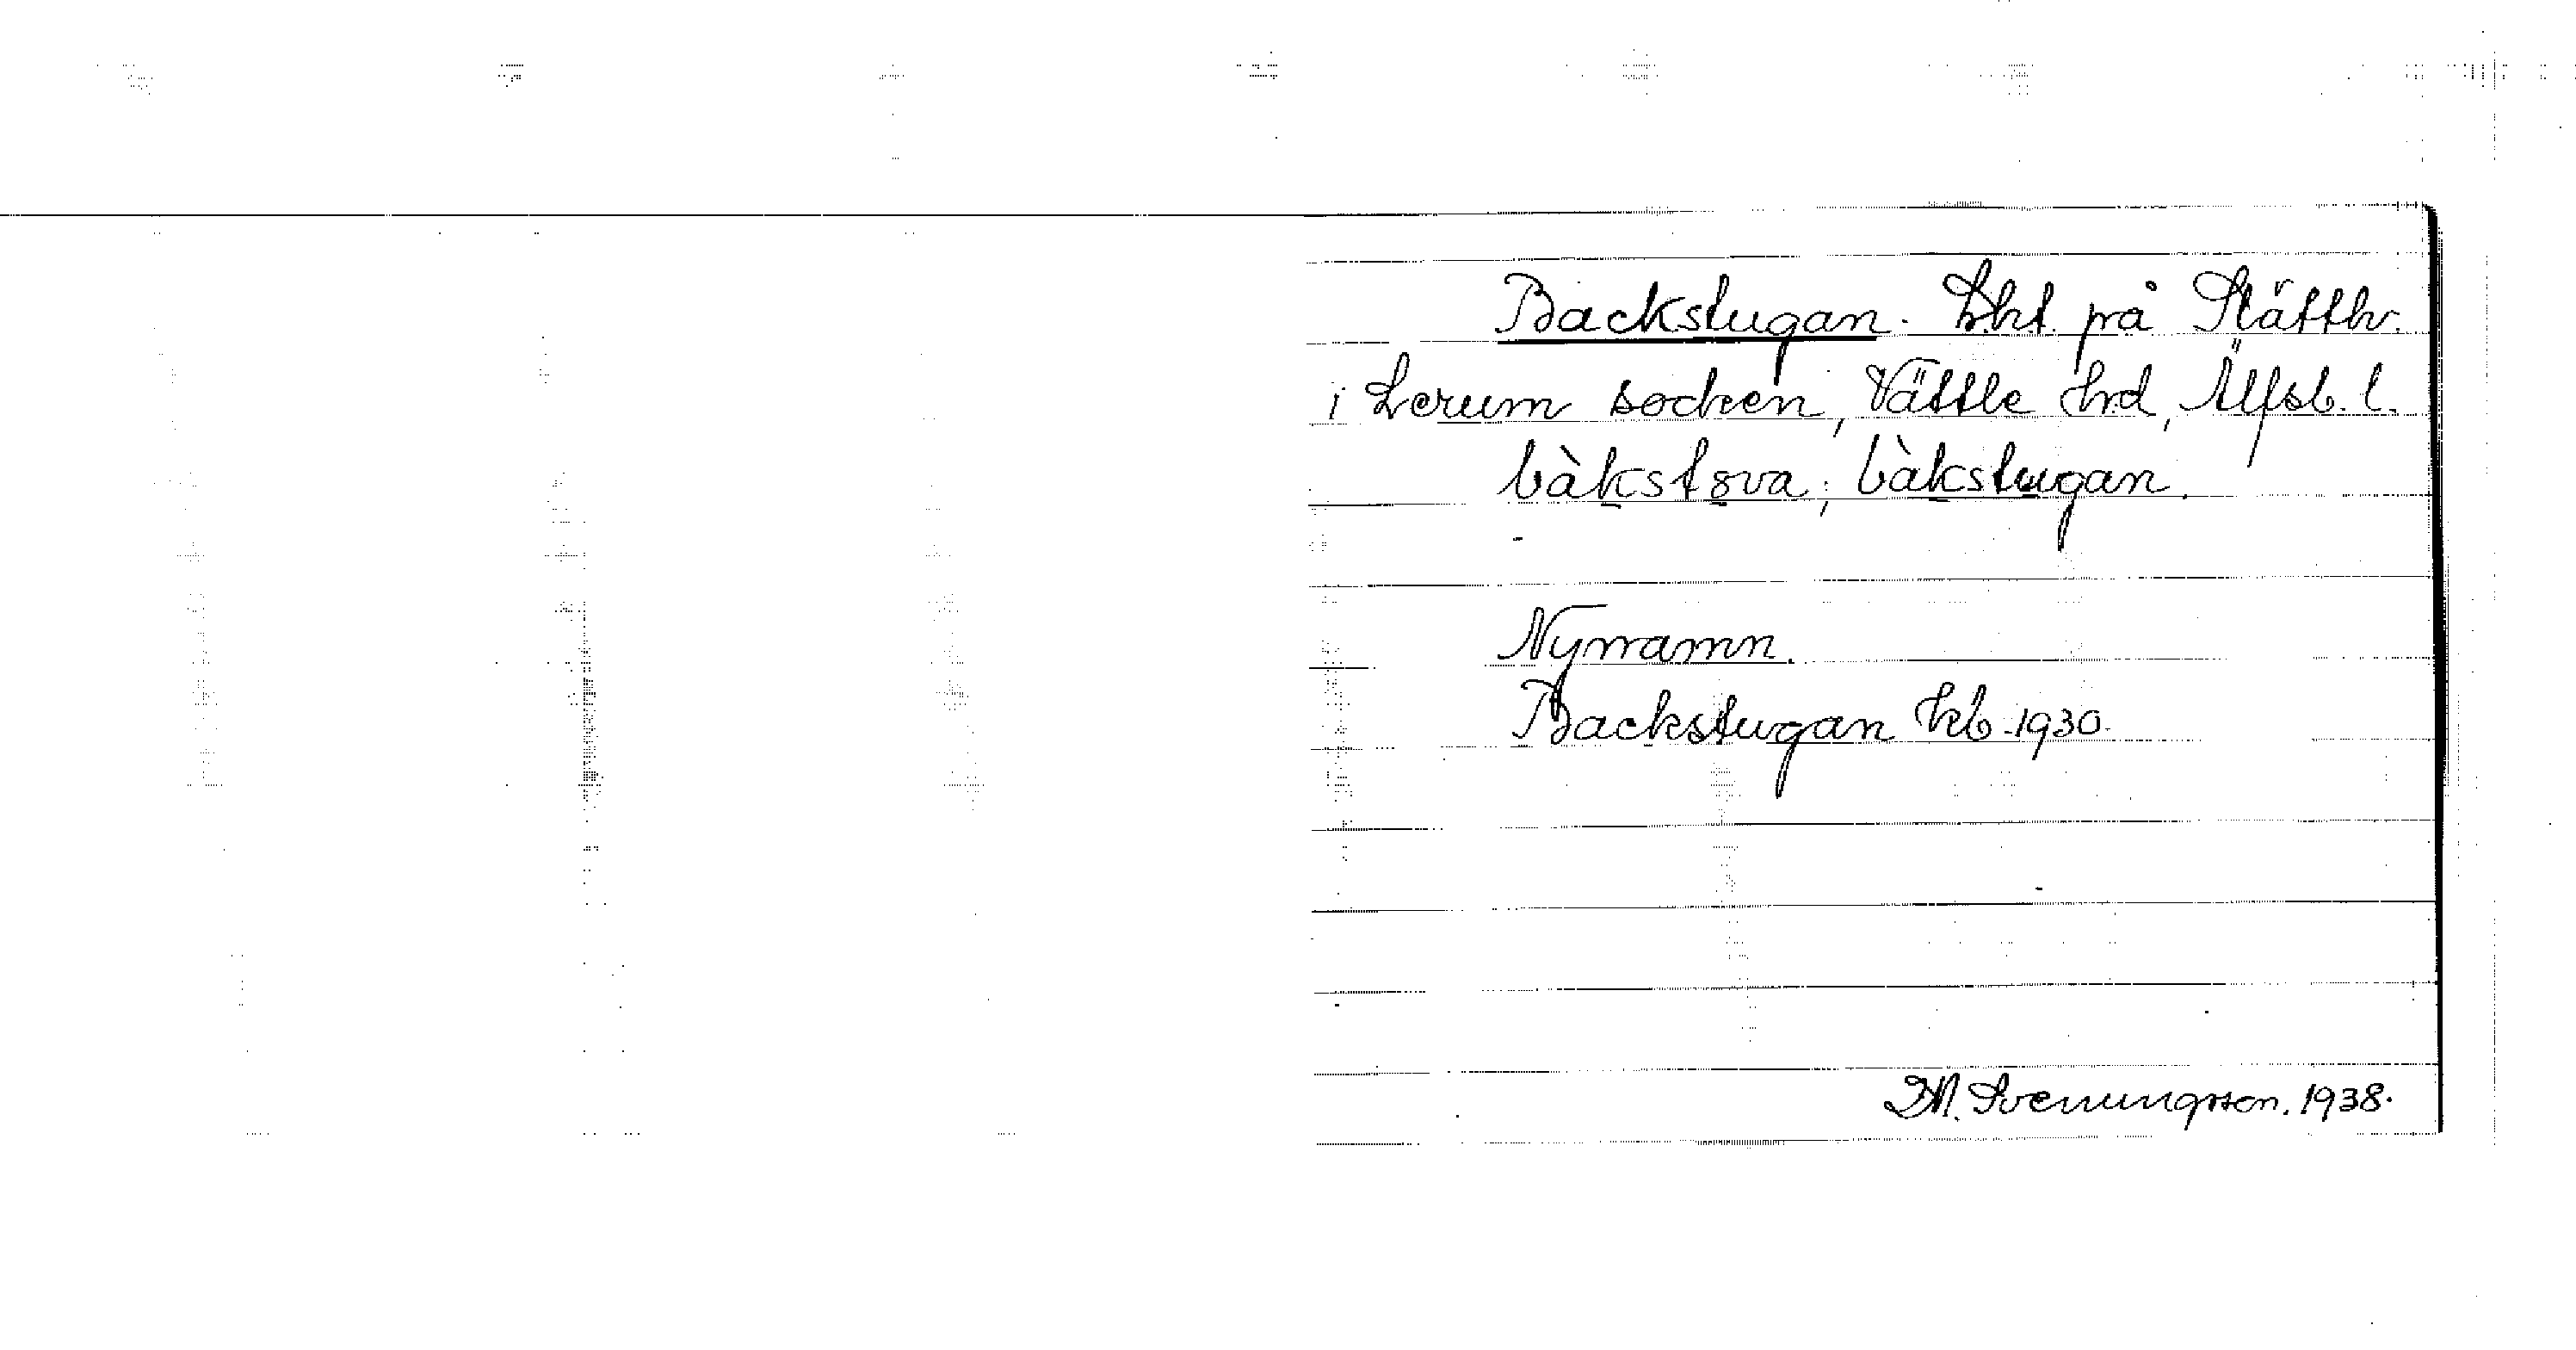 Backstugan. Lht. på Slätthv.
i Lerum socken, Vättle hrd, Älfsb. l.
bàkstova; bàkstugan.
Nynamn.
Backstugan kb 1930.
D.M. Svenungsson. 1938.